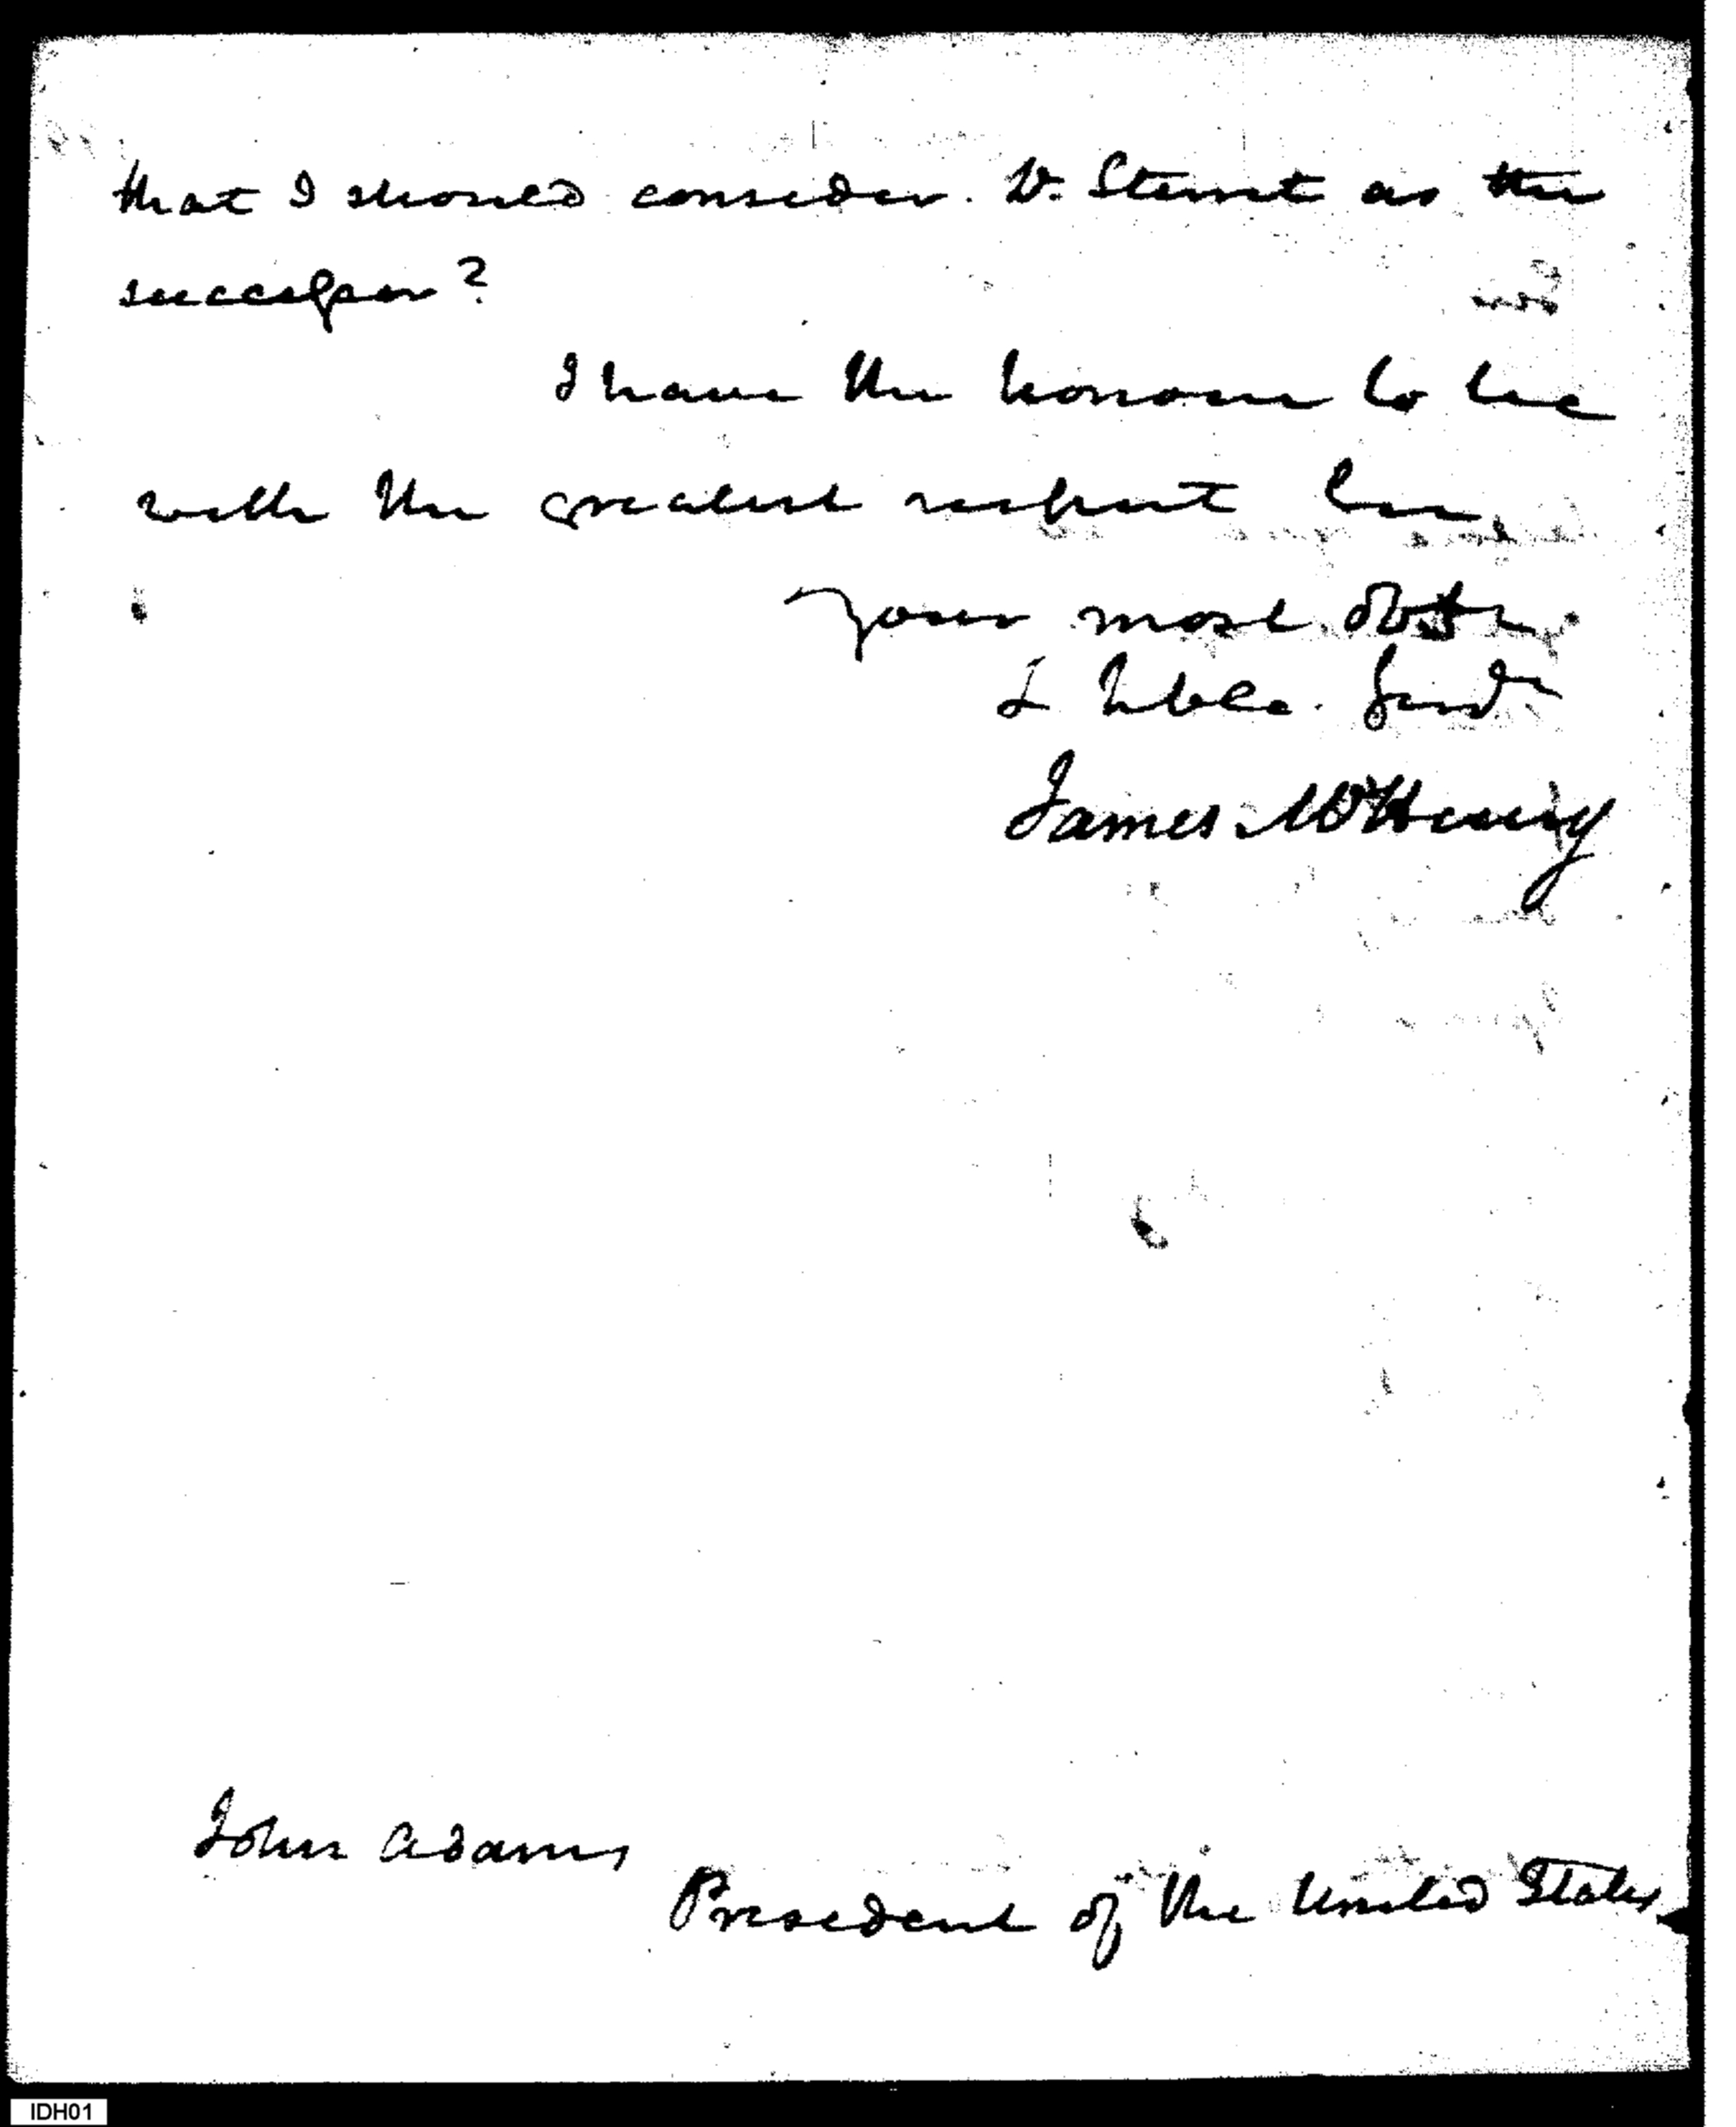 that I should consider Dr. Sterret as the
successor?
I have the honour to be
with the greatest respect Sir,
Your most obt
& hble. Servt
James McHenry
John Adams
President of the United States
IDH01